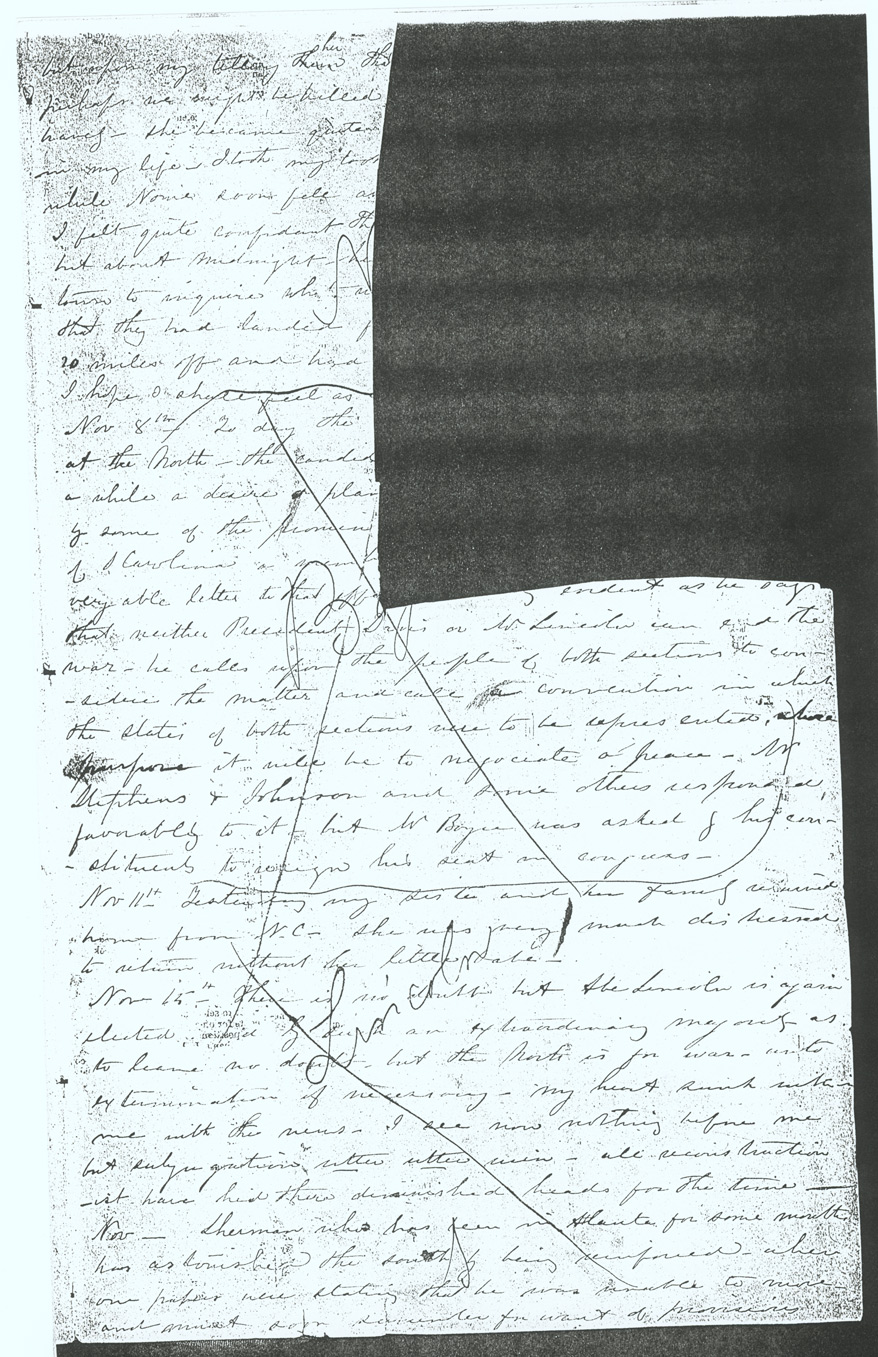 but upon my telling her the
perhaps we might be killed
hang- she became quite
in my life - I took my
while Nome soon fell
I felt quite confident th
but about midnight - 
town to inquire what
that they had landed
20 miles off and had
I hope I shall feel as
Nov 8th To day the
at the North - the candid
a while a desire plan
by some of the
of S Carolina a
very able letter to that eff evident as he says
that neither President Davis or Mr Lincoln can end the
war - he calls upon the people of both sections to con-
-sider the matter and call a convention in which
the States of both sections were to be represented, whose
purpose it will be to negociate a peace - Mr
Stephens & Johnson and some others responded
favorably to it - but Mr Boyce was asked by his con-
-stituents to resign his seat in congress -
Nov 11th Yesterday my sister and her family returned
home from N.C - she was very much distressed
to return without her little babe -
Lincoln
Nov 15th There is no doubt but Abe Lincoln is again
elected and by such an extraordinary majority as
to leave no doubt - but the North is for war - unto
extermination if necessary - my heart sunk within
me with the news - I see now nothing before me
but subjugation, utter utter ruin - all reconstruction
-ist have hid there diminished heads for the time -
Nov - Sherman who has been in Atlanta for some months
has astonished the south by being reinforced - when
our papers were stating that he was unable to move
and must soon surrender for want of provisions